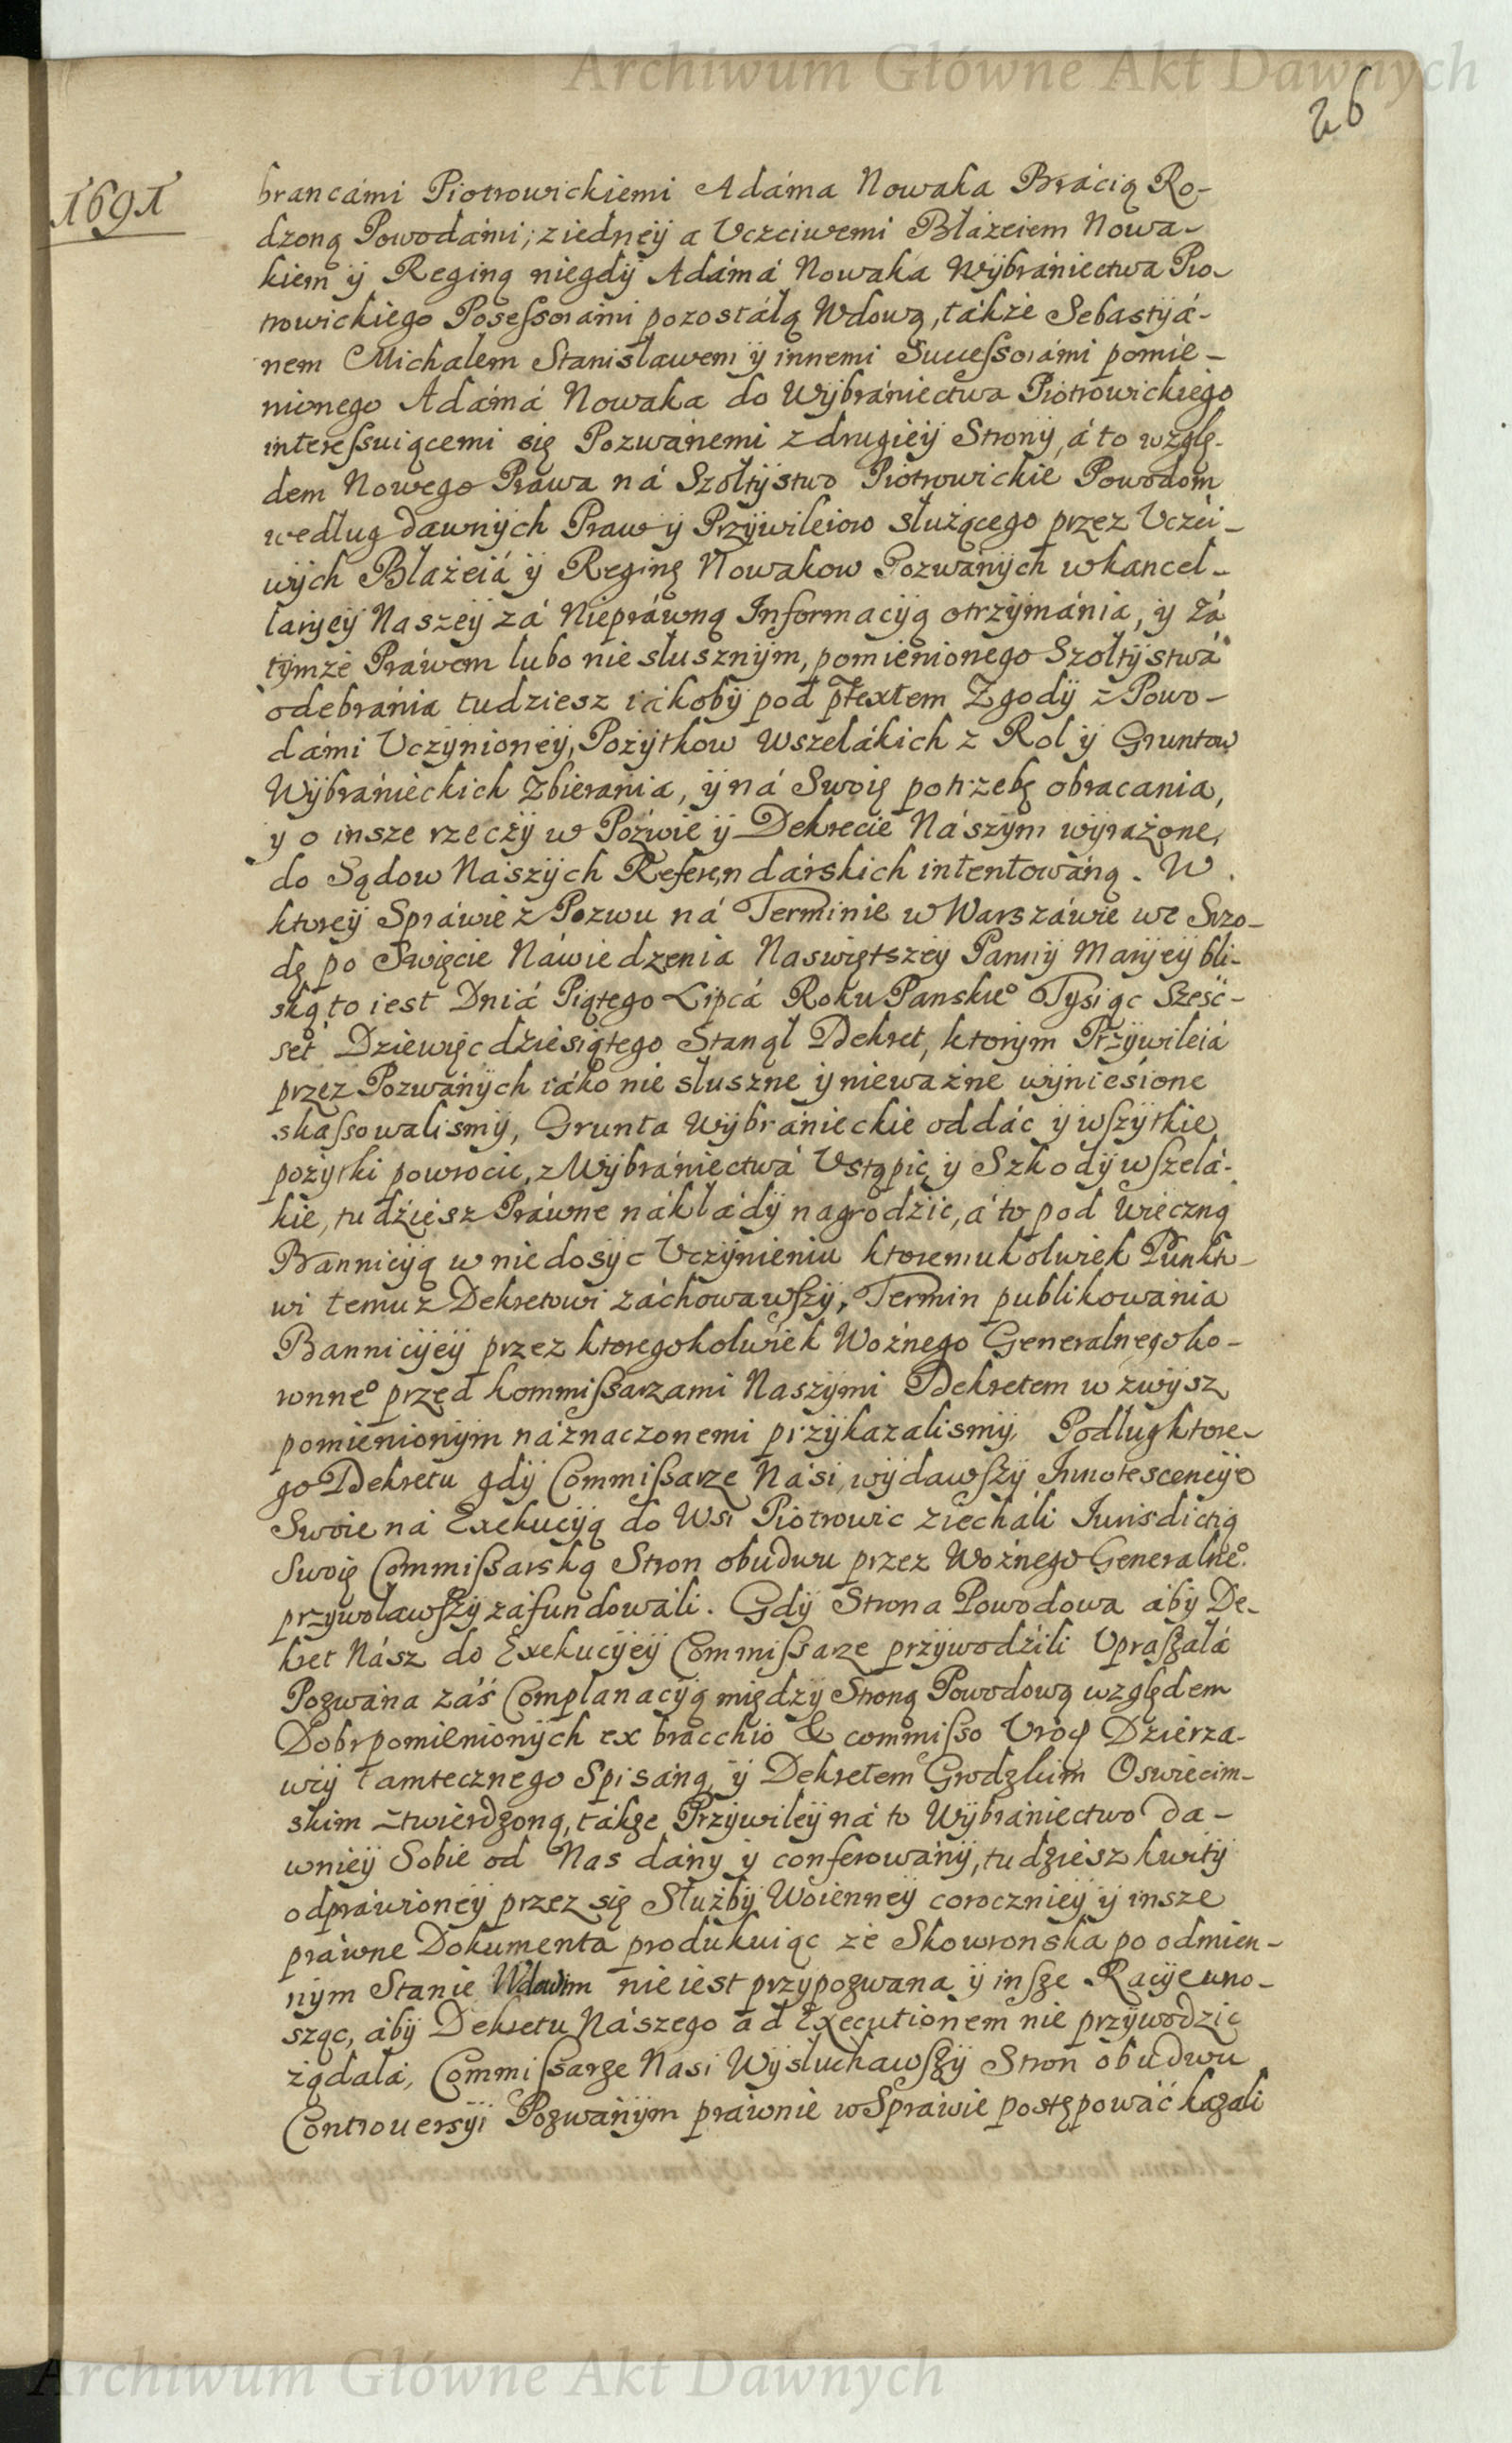 Archiwum Główne Akt Dawnych
26
1691
brancámi Piotrowickiemi Adáma Nowaka Brácią Ro-
dzoną Powodámi, ziedneÿ a Uczciwemi Błażeiem Nowa-
kiem ÿ Reginą niegdÿ Adámá Nowaká Wÿbrániectwa Pio-
trowickiego Posessorámi pozostáłą Wdową, tákże Sebastÿá-
nem Michałem Stanisławem ÿ innemi Successorámi pomie-
nionego Adámá Nowaka do Wÿbrániectwa Piotrowickiego
interessuiącemi się Pozwánemi z drugieÿ Stronÿ, á to wzglę-
dem Nowego Prawa ná Szołtÿstwo Piotrowickie Powodom
według dawnÿch Praw ÿ Przÿwileiow służącego przez Uczci-
wÿch Błażeiá ÿ Reginę Nowakow Pozwánÿch w kancel-
larÿeÿ Naszeÿ zá Niepráwną Informacÿą otrzÿmánia, ÿ zá
tÿmże Práwem lubo niesłusznÿm, pomienionego Szołtÿstwá
odebránia tudziesz iákobÿ pod ptextem Zgodÿ z Powo-
dámi Uczÿnioneÿ, Pożÿtkow Wszelákich z Rol ÿ Gruntow
Wÿbránieckich Zbierania, ÿ ná Swoię potrzebę obracania,
y o insze rzeczÿ w Pozwie ÿ Dekrecie Nászÿm wÿrażone,
do Sądow Naszÿch Referendárskich intentowáną. W
ktoreÿ Spráwie z Pozwu ná Terminie w Warszáwie we Srzo-
dę po Swięcie Náwiedzenia Naswiętszeÿ Pannÿ Marÿeÿ bli-
ską to iest Dniá Piątego Lipcá Roku Panskieº Tysiąc Sześć-
set Dziewięcdziesiątego Stanął Dekret, ktorÿm Przÿwileiá
przez Pozwánÿch iáko niesłuszne ÿ nieważne wÿniesione
skassowalismÿ, Grunta Wÿbránieckie oddác ÿ wszÿtkie
pożÿtki powrocic, z Wÿbrániectwá Ustąpic ÿ Szkodÿ wszelá-
kie, tudziesz Práwne nákładÿ nagrodzic, á to pod wieczną
Bannicÿą w niedosÿc Uczÿnieniu ktoremukolwiek Punkto-
wi temuz Dekretowi záchowawszÿ, Termin publikowánia
Bannicÿeÿ przez ktoregokolwiek Woźnego Generalnego ko-
ronneº przed kommissarzami Naszÿmi Dekretem wzwÿsz
pomienionÿm náznaczonemi przÿkazalismÿ. Podług ktore-
go Dekretu gdÿ Commissarze Nási, wÿdawszÿ Innotescencÿe
Swoie ná Exekucÿą do Wsi Piotrowic ziecháli Iurisdictią
Swoię Commissarską Stron obudwu przez Woźnego Generalneº
przÿwoławszÿ zafundowali. Gdÿ Strona Powodowa abÿ De-
kret Nász do Exekucÿeÿ Commissarze przÿwodźili Upraszałá
Pozwána záś Complanacÿą międzÿ Stroną Powodową względem
Dobr pomienionÿch ex bracchio & commisso Urod Dzierza-
wcÿ tamtecznego Spisáną, ÿ Dekretem Grodzkim Oswiecim-
skim stwierdzoną, tákze Przÿwileÿ ná to Wÿbrániectwo da-
wnieÿ Sobie od Nas dánÿ ÿ conferowánÿ, tudziesz kwitÿ
odpráwioneÿ przez się Służbÿ Woienneÿ corocznieÿ ÿ insze
práwne Dokumenta produkuiąc że Skowronska po odmien-
nÿm Stanie Wdowim nie iest przypozwana ÿ insze Racÿe wno-
sząc, abÿ Dekretu Nászego ad Executionem nie przÿwodzic
żądałá, Commissarze Nasi Wÿsłuchawszÿ Stron obudwu
Controuersÿi Pozwánÿm práwnie w Spráwie postępowáć kazali
Archiwum Główne Akt Dawnych